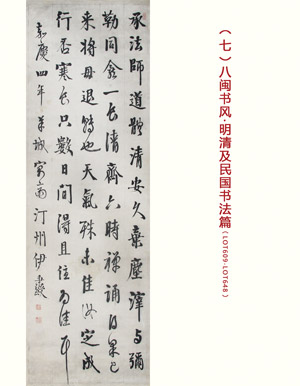 （七）八闽书风·明清及民国书法篇（LOT609-LOT648）
承法師道體清安久棄塵滓与彌
勒同龕一長清齋六時禪誦得果已
来將毋退轉也天氣殊未佳汝定成
行否寒食只數日間得且住為佳耳
嘉慶四年羊城寓齋汀州伊秉綬